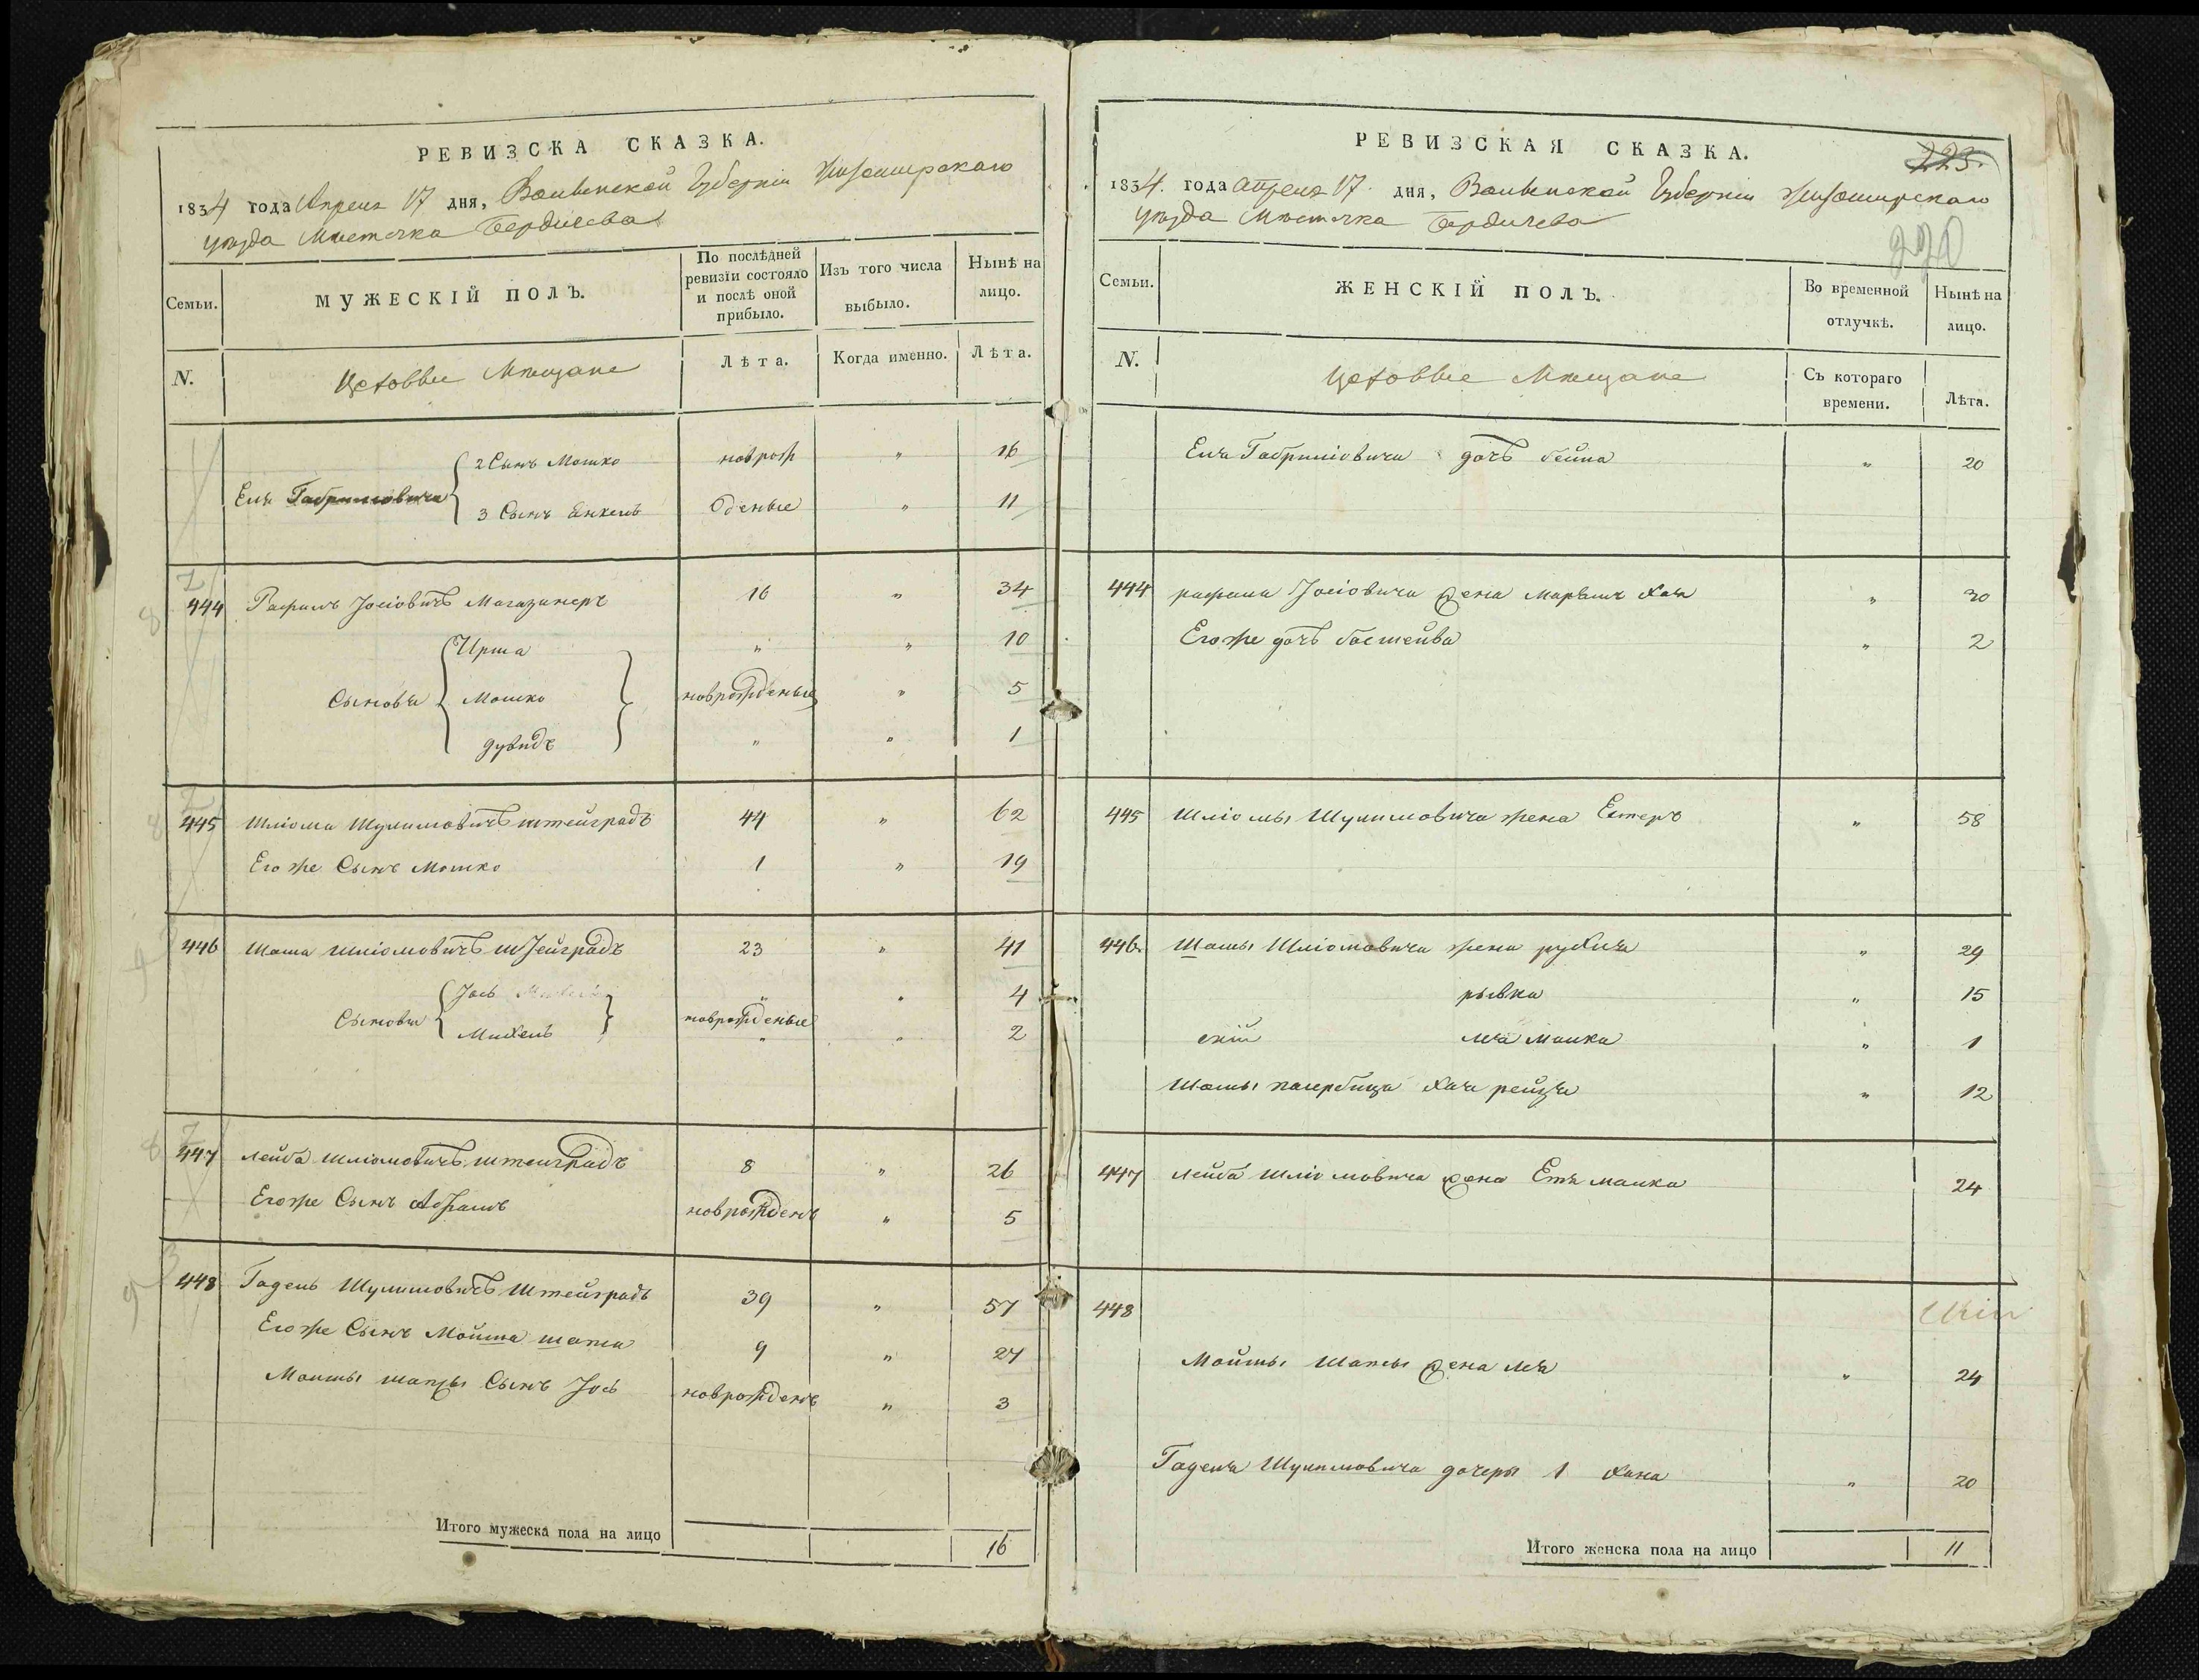 РЕВИЗСКА СКАЗКА.
1834 года Апреля 17 дня, Волынской Губерніи Житомирскаго
уѣзда Мѣстечка Бердичева
Семьи.
МУЖЕСКІЙ ПОЛЪ.
По послѣдней ревизіи состояло и послѣ оной прибыло.
Изъ того числа выбыло.
Нынѣ на лицо.
N.
Цеховые Мѣщане
Лѣта.
Когда именно.
Лѣта.
Еля Габриловича 2 Сынъ Мошко новрож „ 16
3 Сынъ Янкель деные „ 11
444 Рафаилъ Іосіовичъ Магазинеръ 16 „ 34
Ирша „ „ 10
Сыновья Мошко новрожденые „ 5
Дувидъ „ „ 1
445 Шліома Шулимовичъ Штейградъ 44 „ 62
Его же Сынъ Мошко 1 „ 19
446 Шама Шліомовичъ Штейградъ 23 „ 41
Іось „ „ 4
Сыновья новрожденые
Михель „ „ 2
447 Лейба Шліомовичъ Штейградъ 8 „ 26
Его же Сынъ Абрамъ новрожденъ „ 5
448 Гадель Шулимовичъ Штейградъ 39 „ 57
Его же Сынъ Мойша шапса 9 „ 27
Мошы шапсы Сынъ Іось новрожденъ „ 3
Итого мужеска пола на лицо 16
РЕВИЗСКАЯ СКАЗКА.
223.
1834. года Апреля 17. дня, Волынской Губерніи Житомирскаго
уѣзда Мѣстечка Бердичева
220
Семьи.
ЖЕНСКІЙ ПОЛЪ.
Во временной отлучкѣ.
Нынѣ на лицо.
N.
Цеховые Мѣщане
Съ котораго времени.
Лѣта.
Еля Габриліовича дочь бейла „ 20
444 рафаила Іосіовича жена Марьямъ Хая „ 30
Его же дочь басшейва „ 2
445 Шліомы Шулимовича жена Естеръ „ 58
446. Шамы Шліомовича жена рухля „ 29
рывка „ 15
лея малка „ 1
Шамы падчерица Хая рейзя „ 12
447 Лейба Шліомовича жена Етя малка 24
448
Мойшы Шапсы жена лея „ 24
Гаделя Шулимовича дочеры 1 Хана „ 20
Итого женска пола на лицо 11